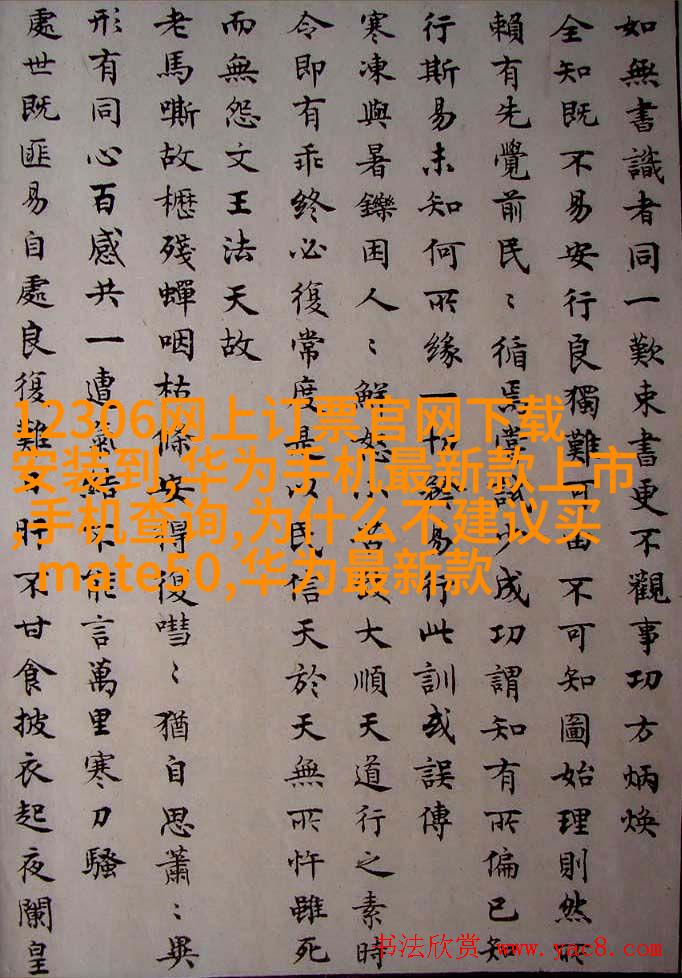 如無書識者同一歎束書更不觀事功方炳煥
全知既不易安行良獨難可由不可知圖始理則然所
賴有先覺前民〻循焉嘗試少成功謂知有所偏已知
行斯易未知何所緣一切解易行此訓或誤傳
寒凍與暑鑠困人〻鮮恕小大順天道行之素時
令即有乖終必復常度是以民信天於天無所忤雖死
而無怨文王法天故
老馬嘶故櫪殘蟬咽枯條安得復嘒〻猶自思蕭〻異
形有同心百感共一遭氣結不能言萬里寒刀騷
處世既匪易自處良復難不甘食披衣起夜闌皇
12306网上订票官网下载
安装到,华为手机最新款上市
,手机查询,为什么不建议买
mate50,华为最新款
书法欣赏 www.yac8.com